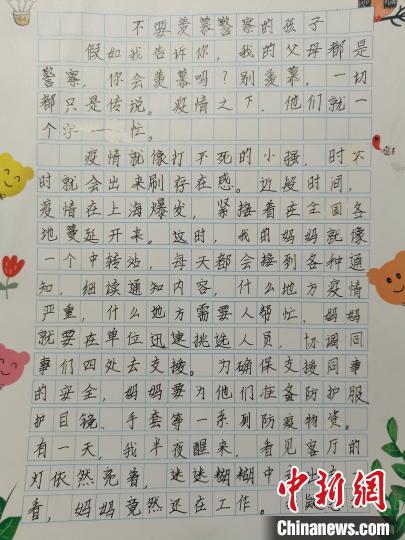 不要羡慕警察的孩子
假如我告诉你，我的父母都是
警察，你会羡慕吗？别羡慕，一切
都只是传说。疫情之下，他们就一
个字——忙。
疫情就像打不死的小强，时不
时就会出来刷存在感。近段时间，
疫情在上海爆发，紧接着在全国各
地蔓延开来。这时，我的妈妈就像
一个中转站，每天都会接到各种通
知，细读通知内容，什么地方疫情
严重，什么地方需要人帮忙，妈妈
就要在单位迅速挑选人员，协调同
事们四处去支援。为确保支援同事
的安全，妈妈要为他们准备防护服
护目镜、手套等一系列防疫物资。
有一天，我半夜醒来，看见客厅的
灯依然亮着，迷迷糊糊中
看，妈妈竟然还在工作。
中新网
Chinanews.com